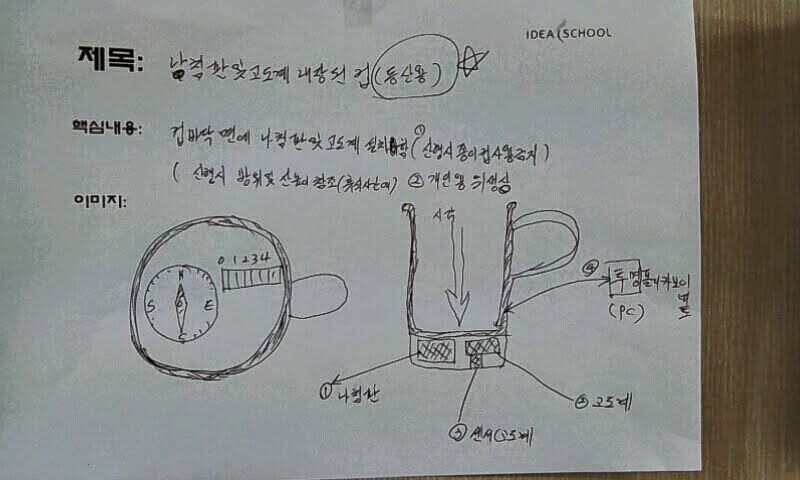 IDEA SCHOOL
제목: 나침판 및 고도계 내장된 컵 (등산용)
핵심내용: 컵 바닥 면에 나침판 및 고도계 설치함 ① (산행시 종이컵 사용금지)
(산행시 방위 및 산높이 참조 ② 개인용 위생상
이미지:
0 1 2 3 4
N
S E
S
시각
① 나침판
③ 센서(고도계
② 고도계
④ 투명폴리카보이네트
(PC)